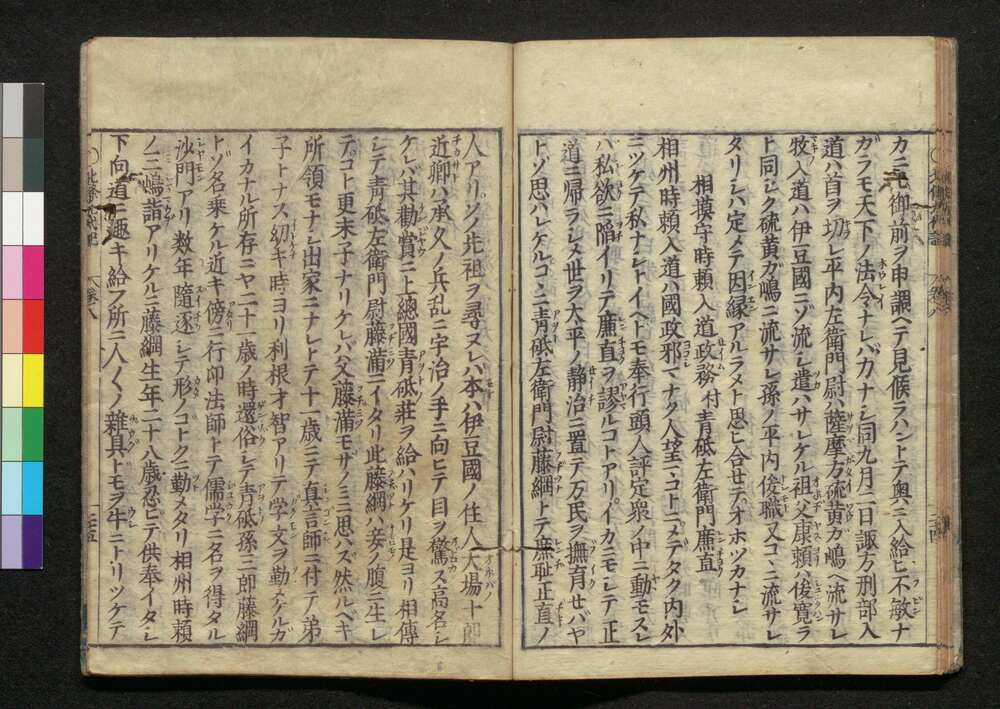 カニモ御前ヲ申調ヘテ見候ラハントテ奥ニ入給ヒ不敏ナ
ガラモ天下ノ法令ナレバカナシ同九月二日諏方刑部入
道ハ首ヲ切レ平内左衛門尉ハ薩摩方硫黄ガ嶋ヘ流サレ
牧入道ハ伊豆國ニゾ流シ遣ハサレケル祖父康頼ハ俊寛ラ
ト同シク硫黄ガ嶋ニ流サレ孫ノ平内俊職又コヽニ流サレ
タリシハ定メテ因縁アルラメト思ヒ合セテオホツカナシ
相摸守時頼入道政務付青砥左衛門廉直
相州時頼入道ハ國政邪マナク人望ニコトニメデタク内外
ニツケテ私ナシトイヘトモ奉行頭人評定衆ノ中ニ動モスレ
バ私欲ニ陥イリテ廉直ヲ謬ルコトアリイカニモシテ正
道ニ帰ラシメ世ヲ太平ノ静治ニ置テ万民ヲ撫育セバヤ
トゾ思ハレケルコヽニ青砥左衛門尉藤綱トテ廉恥正直ノ
人アリソノ先祖ヲ尋ヌレハ本ハ伊豆國ノ住人大場十郎
近郷ハ承久ノ兵乱ニ宇治ノ手ニ向ヒテ目ヲ驚ス高名シ
ケレバ其勧賞ニ上總國青砥莊ヲ給ハリケリ是ヨリ相傳
シテ青砥左衛門尉藤満ニイタリ此藤綱ハ妾ノ腹ニ生レ
テコト更末子ナリケレバ父藤満モサノミニ思ハズ然ルベキ
所領モナシ出家ニナシトテ十一歳ニテ真言師ニ付テ弟
子トナス幼キ時ヨリ利根才智アリテ学文ヲ勤メケルガ
イカナル所存ニヤ二十一歳ノ時還俗シテ青砥孫三郎藤綱
トソ名乗ケル近キ傍ニ行印法師トテ儒学ニ名ヲ得タル
沙門アリ数年随逐シテ形ノコトクニ勤メタリ相州時頼
ノ三嶋詣アリケルニ藤綱生年二十八歳忍ビテ供奉イタシ
下向道ニ趣キ給フ所ニ人〱ノ雜具トモヲ牛ニトリツケテ